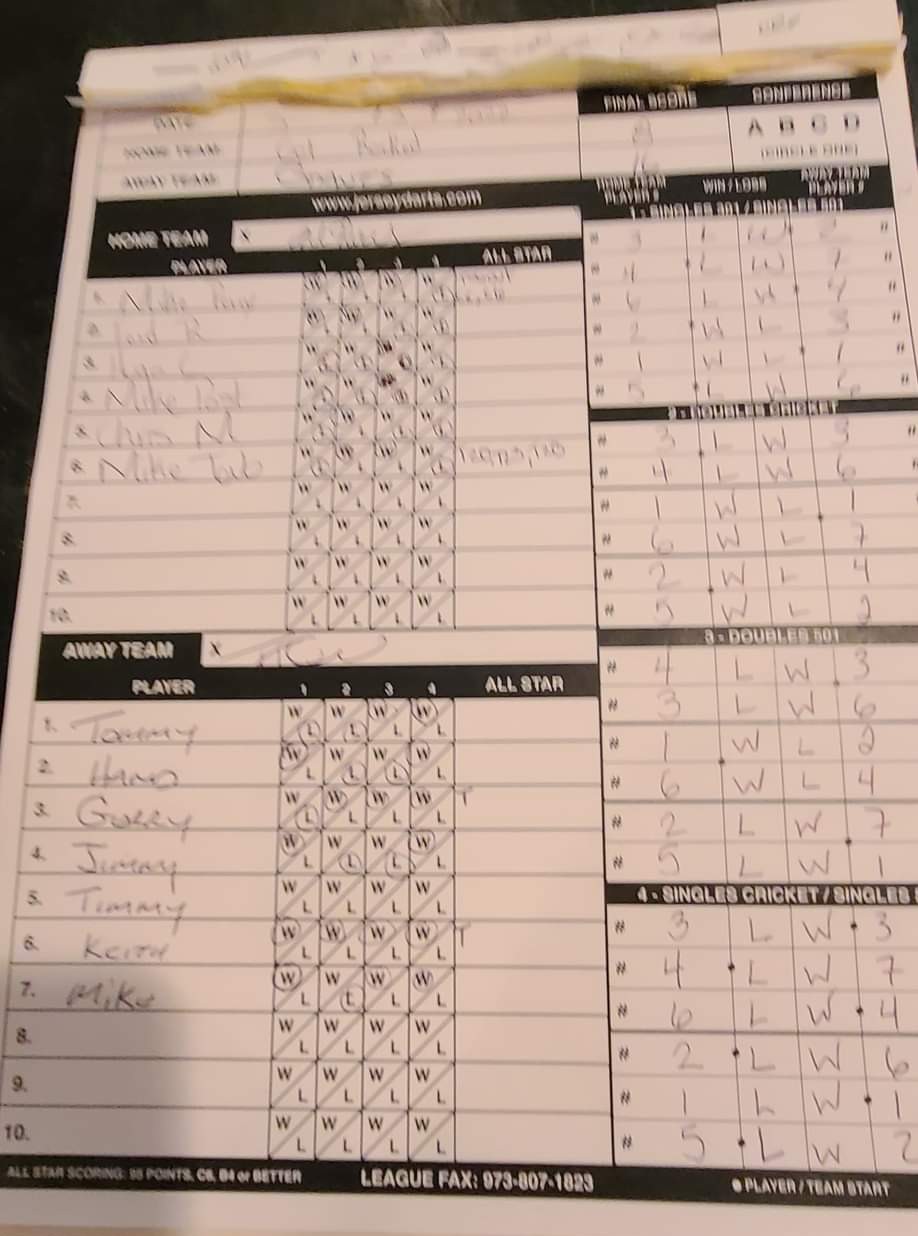 FINAL SCORE CONFERENCE
DATE
HOME TEAM 8 A B C D
AWAY TEAM 16 (CIRCLE ONE)
www.jerseydarts.com
HOME TEAM PLAYER # WIN / LOSS AWAY TEAM PLAYER #
1 - SINGLES 301 / SINGLES 501
HOME TEAM X
PLAYER 1 2 3 4 ALL STAR
1. Mike W L W L W L W L
2. R W L W L W L W L
3. W L W L W L W L
4. Mike W L W L W L W L
5. Chris M W L W L W L W L
6. Mike W L W L W L W L
7. W L W L W L W L
8. W L W L W L W L
9. W L W L W L W L
10. W L W L W L W L
# 3 L W "
# 4 L W 7 "
# 6 L W 4 "
# 2 W L 3 "
# 1 W L 1 "
# 5 L W 6 "
2 - DOUBLES CRICKET
# 3 L W 3 "
# 4 L W 6 "
# 1 W L 1
# 6 W L 7
# 2 W L 4
# 5 W L 2
3 - DOUBLES 501
# 4 L W 3
# 3 L W 6
# 1 W L 2
# 6 W L 4
# 2 L W 7
# 5 L W 1
4 - SINGLES CRICKET / SINGLES
# 3 L W 3
# 4 L W 7
# 6 L W 4
# 2 L W 6
# 1 L W 1
# 5 L W 2
AWAY TEAM X
PLAYER 1 2 3 4 ALL STAR
1. Tommy W L W L W L W L
2. W L W L W L W L
3. Gerry W L W L W L W L T
4. Jimmy W L W L W L W L
5. Timmy W L W L W L W L
6. Keith W L W L W L W L T
7. Mike W L W L W L W L
8. W L W L W L W L
9. W L W L W L W L
10. W L W L W L W L
ALL STAR SCORING: 95 POINTS, C6, B4 or BETTER LEAGUE FAX: 973-807-1823 PLAYER / TEAM START